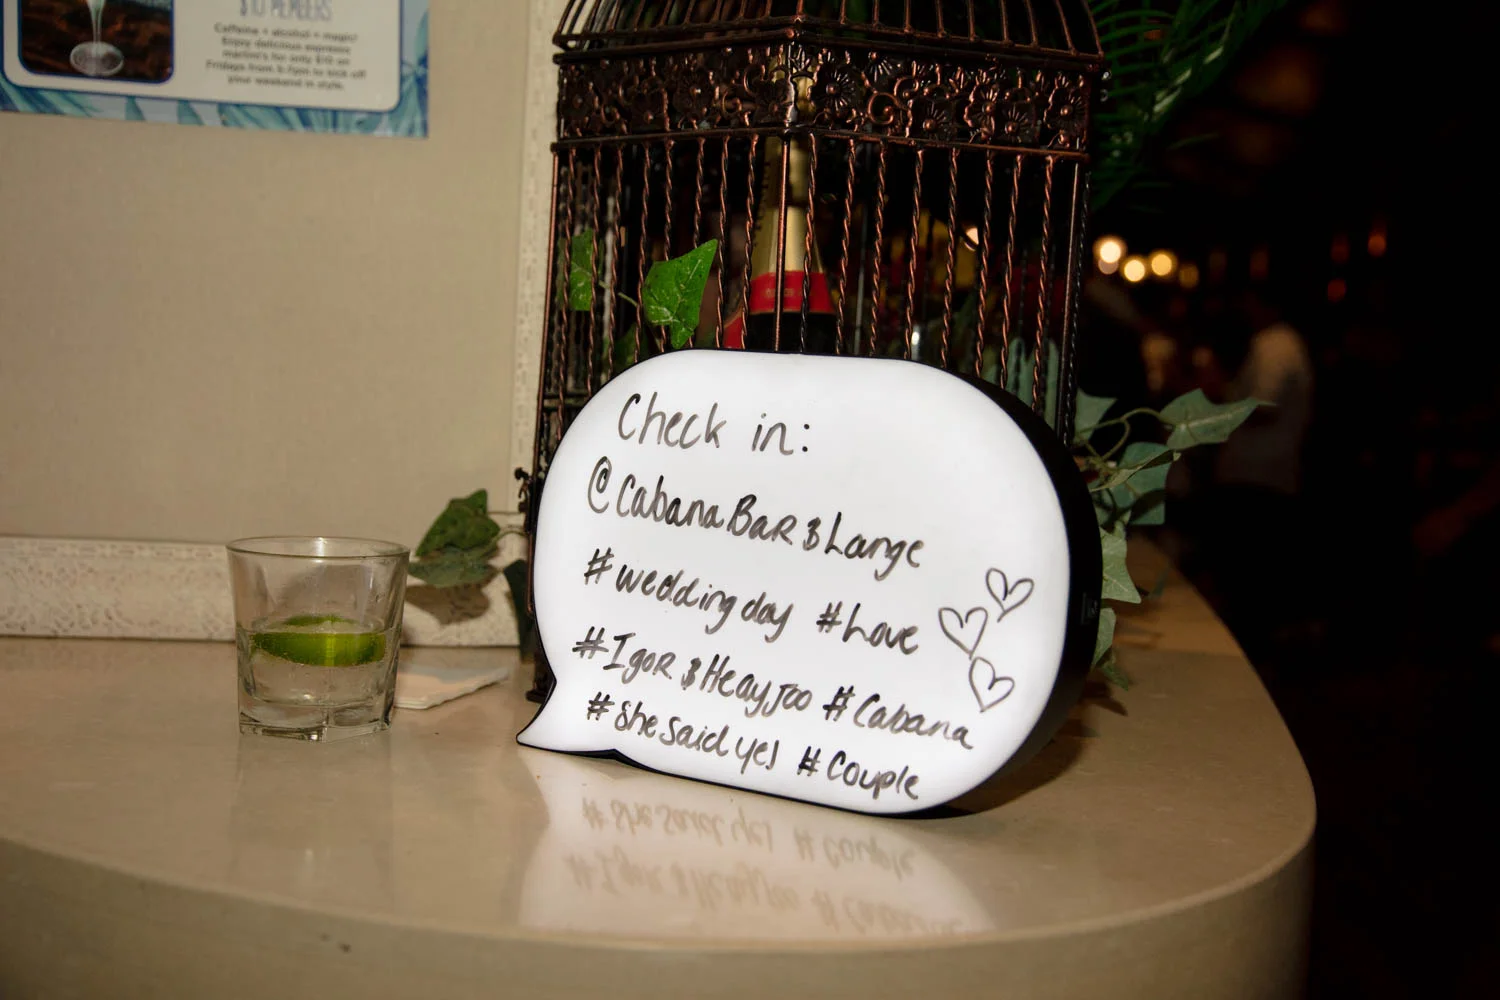 $10 MEMBERS
Caffeine + alcohol = magic!
Enjoy delicious espresso
martini's for only $10 on
Fridays from 5-7pm to kick off
your weekend in style.
Check in:
@CabanaBar&Lounge
#weddingday #Love
#Igor&Heayjoo #Cabana
#shesaidyes #Couple